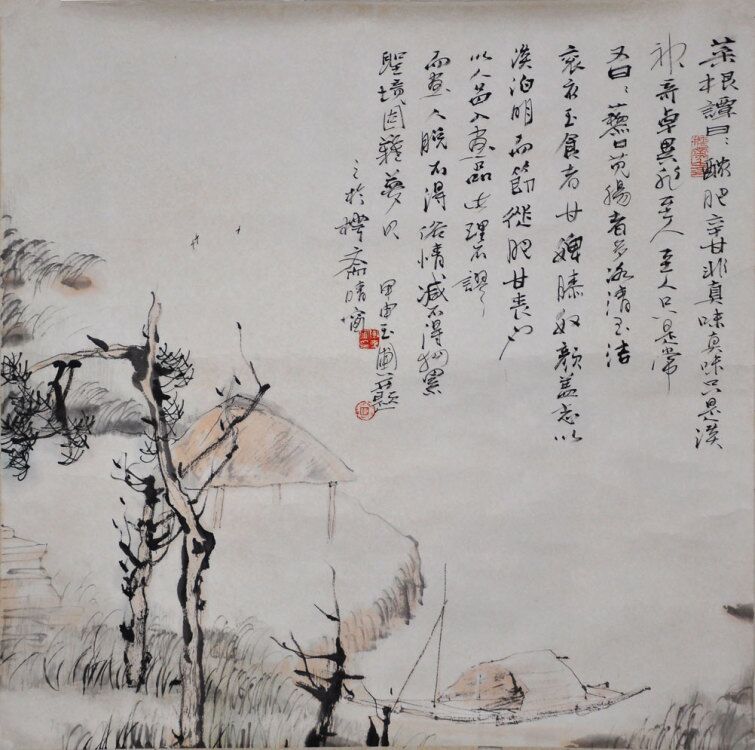 菜根譚曰：醲肥辛甘非真味真味只是淡
神奇卓異非至人至人只是常
又曰：藜口莧腸者多冰清玉潔
袞衣玉食者甘婢膝奴顏蓋志以
淡泊明而節從肥甘喪
以人品入畫品此理不謬
而畫人脫不得俗情減不得物累
聖境固難夢見
甲申玉圃並題
之於齋晴窗